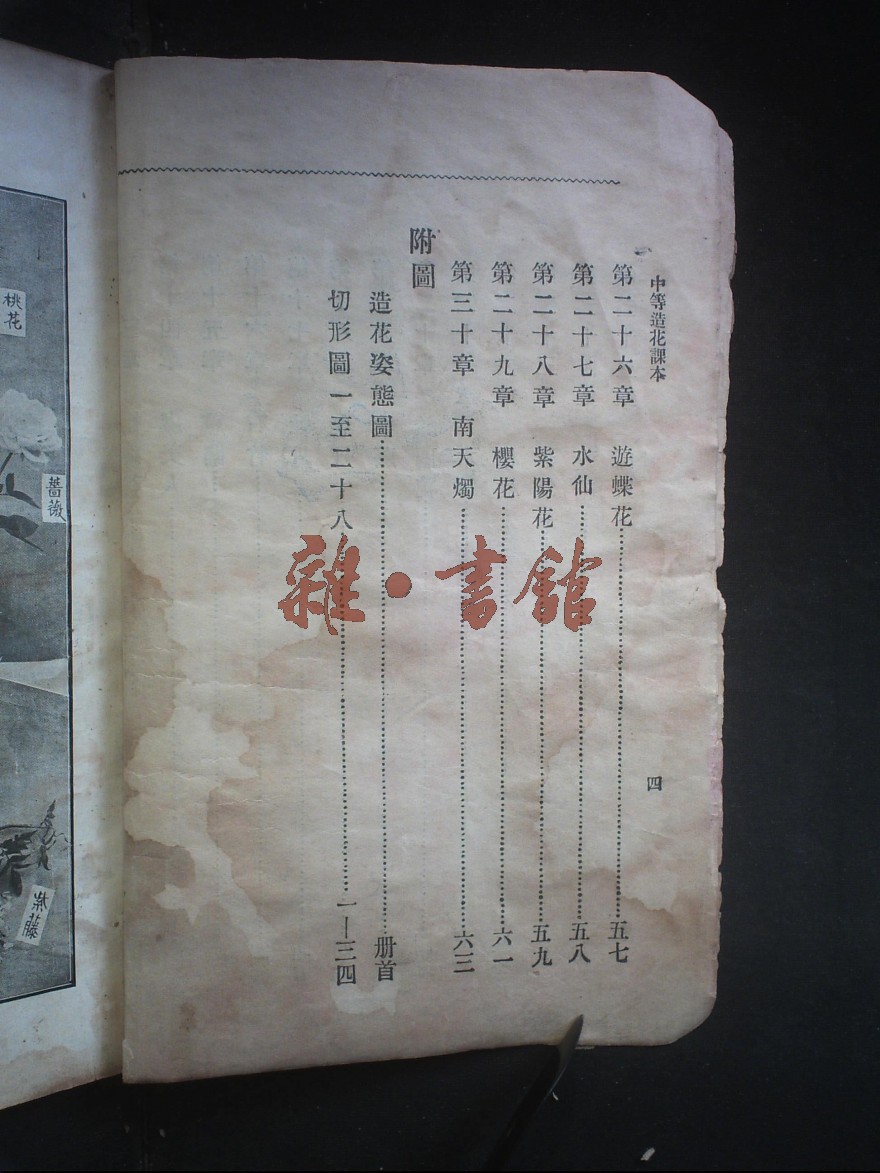 中等造花課本
四
第二十六章 遊蝶花……五七
第二十七章 水仙……五八
第二十八章 紫陽花……五九
第二十九章 櫻花……六一
第三十章 南天燭……六三
附圖
造花姿態圖……册首
切形圖一至二十八……一—三四
桃花
薔薇
紫藤
雜·書館